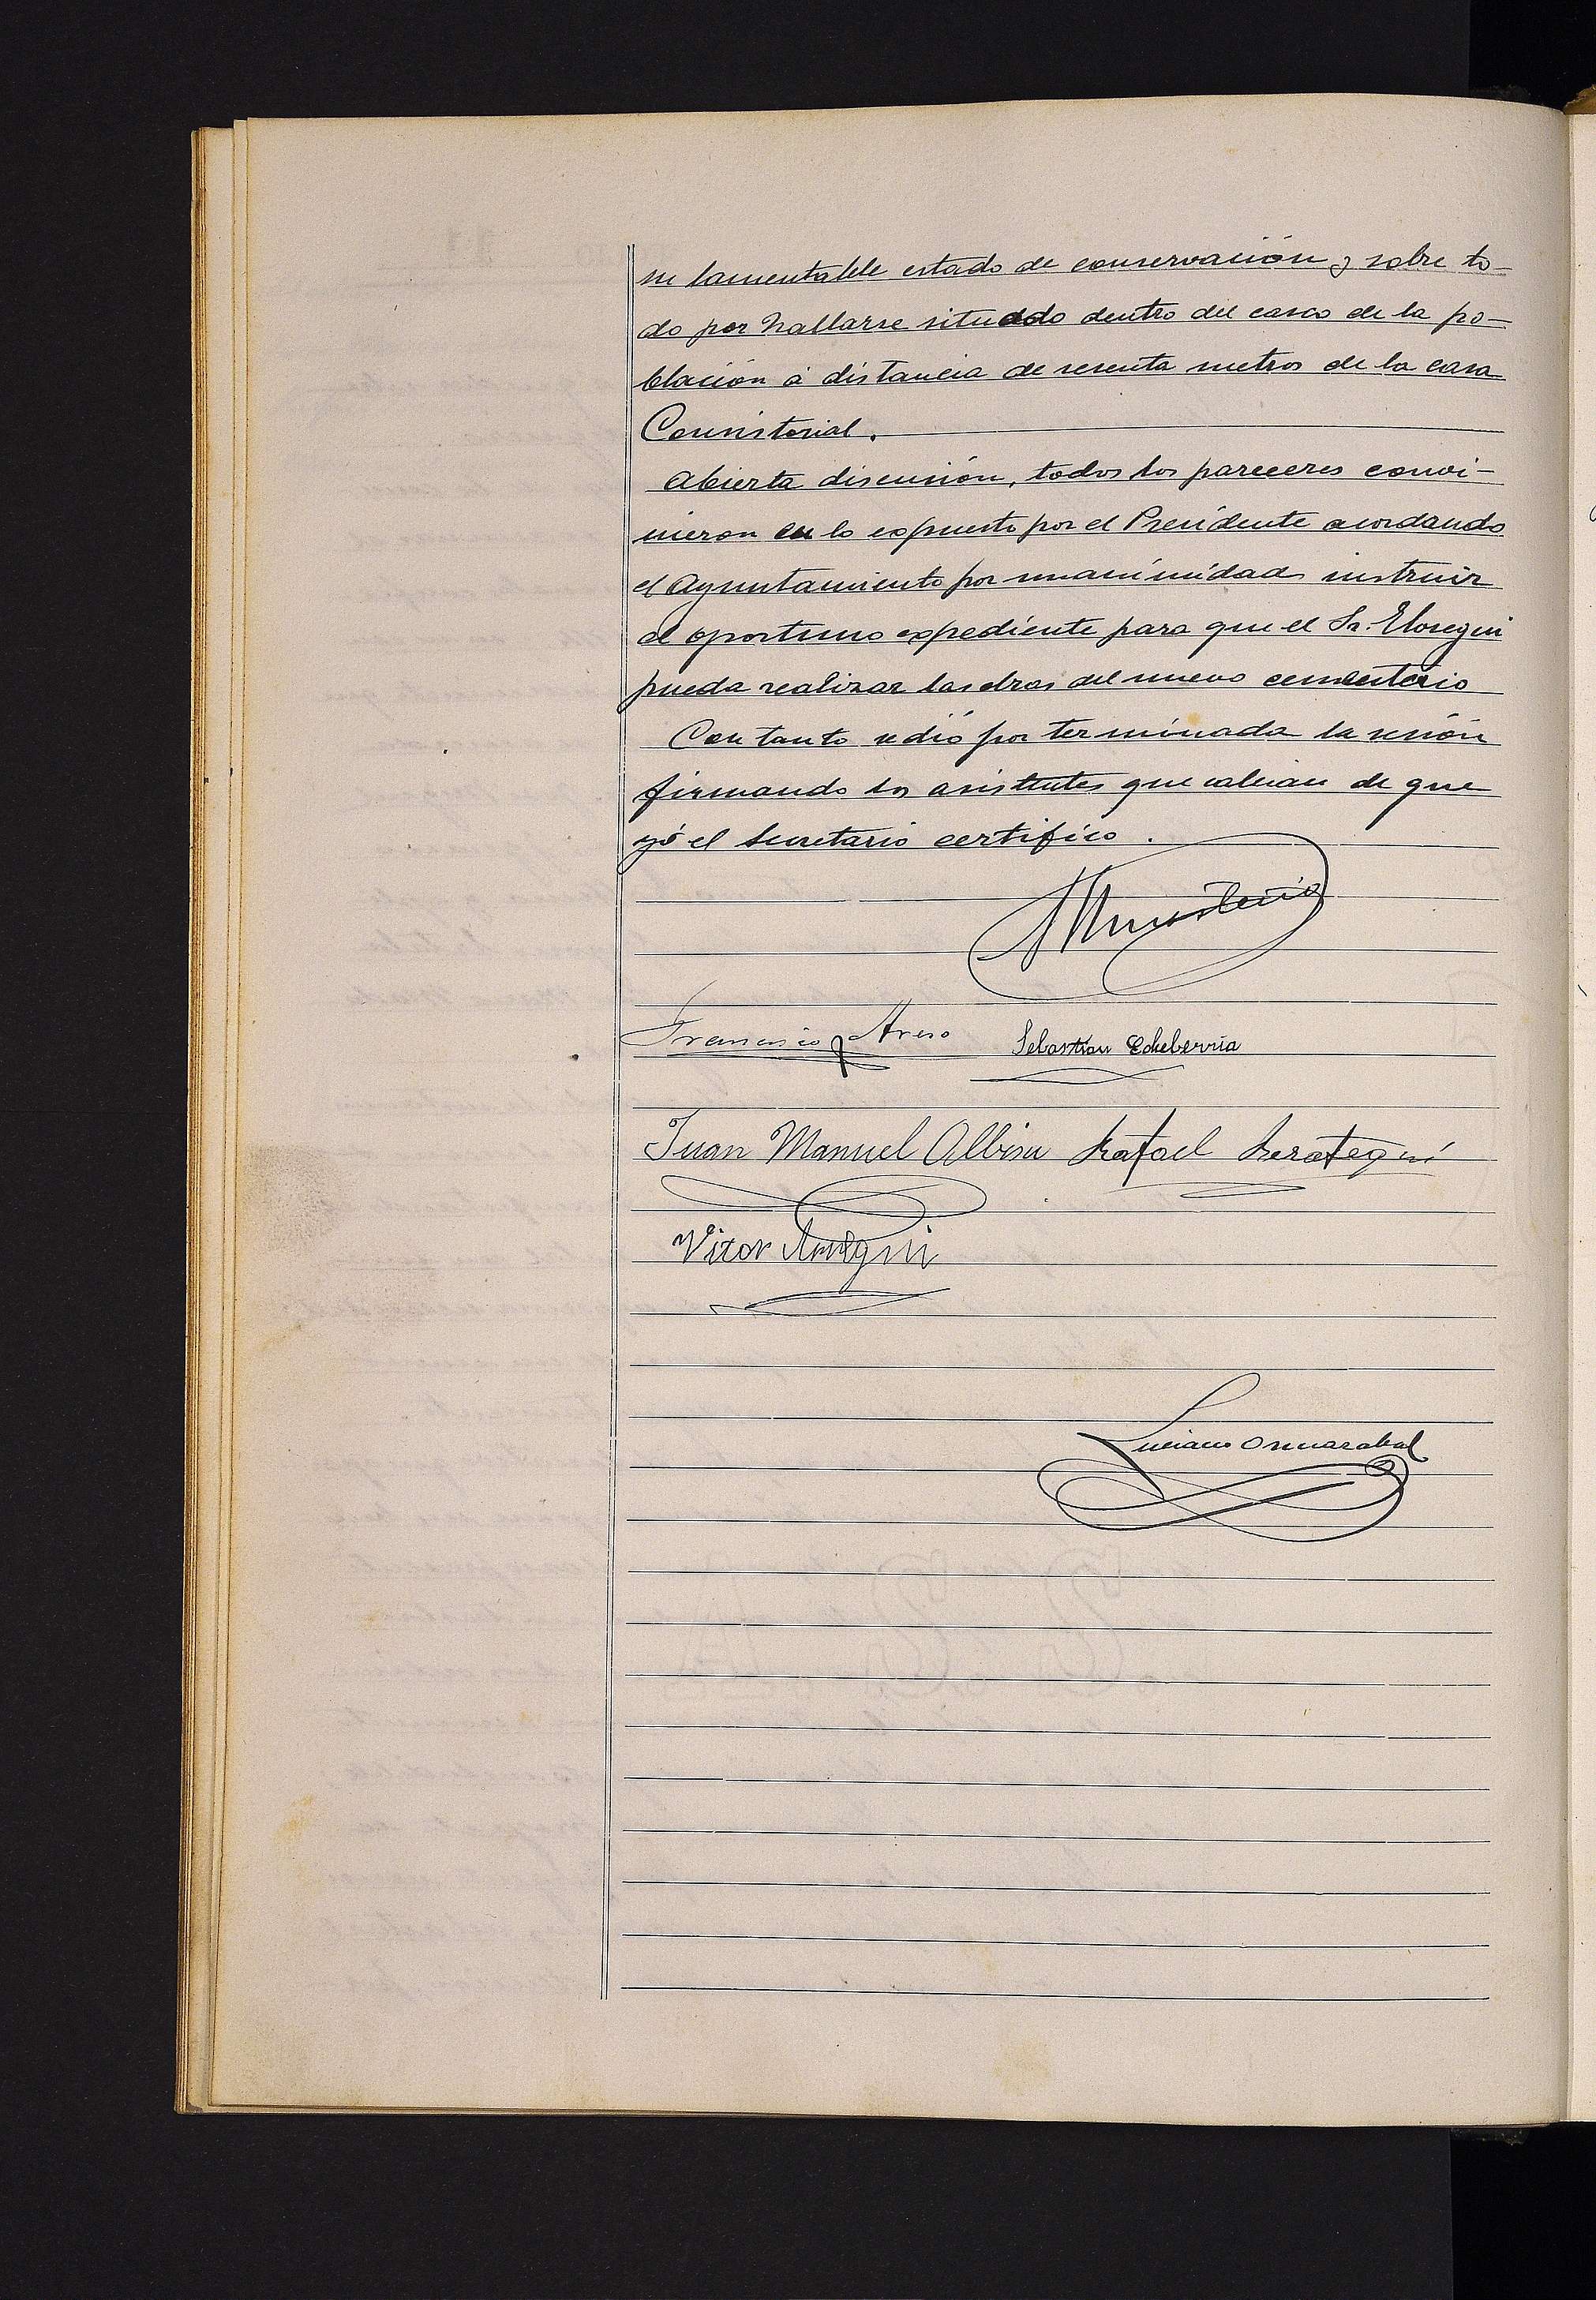 su lamentable estado de conservación y sobre to-
do por hallarse situado dentro del casco de la po-
blación á distancia de sesenta metros de la casa
Consistorial.
Abierta discusión, todos los pareceres convi-
nieron en lo expuesto por el Presidente acordando
el Ayuntamiento por unanimidad instruir
el oportuno expediente para que el Sr. Elosegui
pueda realizar las obras del nuevo cementerio
Con tanto se dió por terminada la sesión
firmando los asistentes que sabian de que
yó el Secretario certifico.
Francisco Areso Sebastian Echeberria
Juan Manuel Albisu Rafael Berategui
Vitor
Luciano Ormazabal